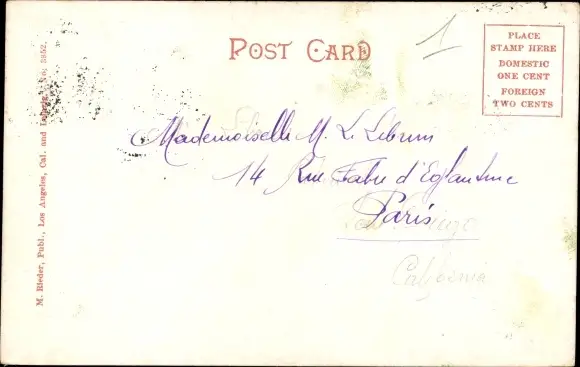 POST CARD
1
PLACE
STAMP HERE
DOMESTIC
ONE CENT
FOREIGN
TWO CENTS
Mademoiselle M. Le Lebrun
14 Rue Fabre d'Eglantine
Paris
California
M. Rieder, Publ., Los Angeles, Cal. and Leipzig. No. 3852.